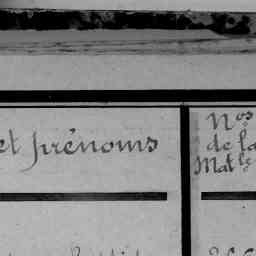 et prénoms
Nos
de la
Matle